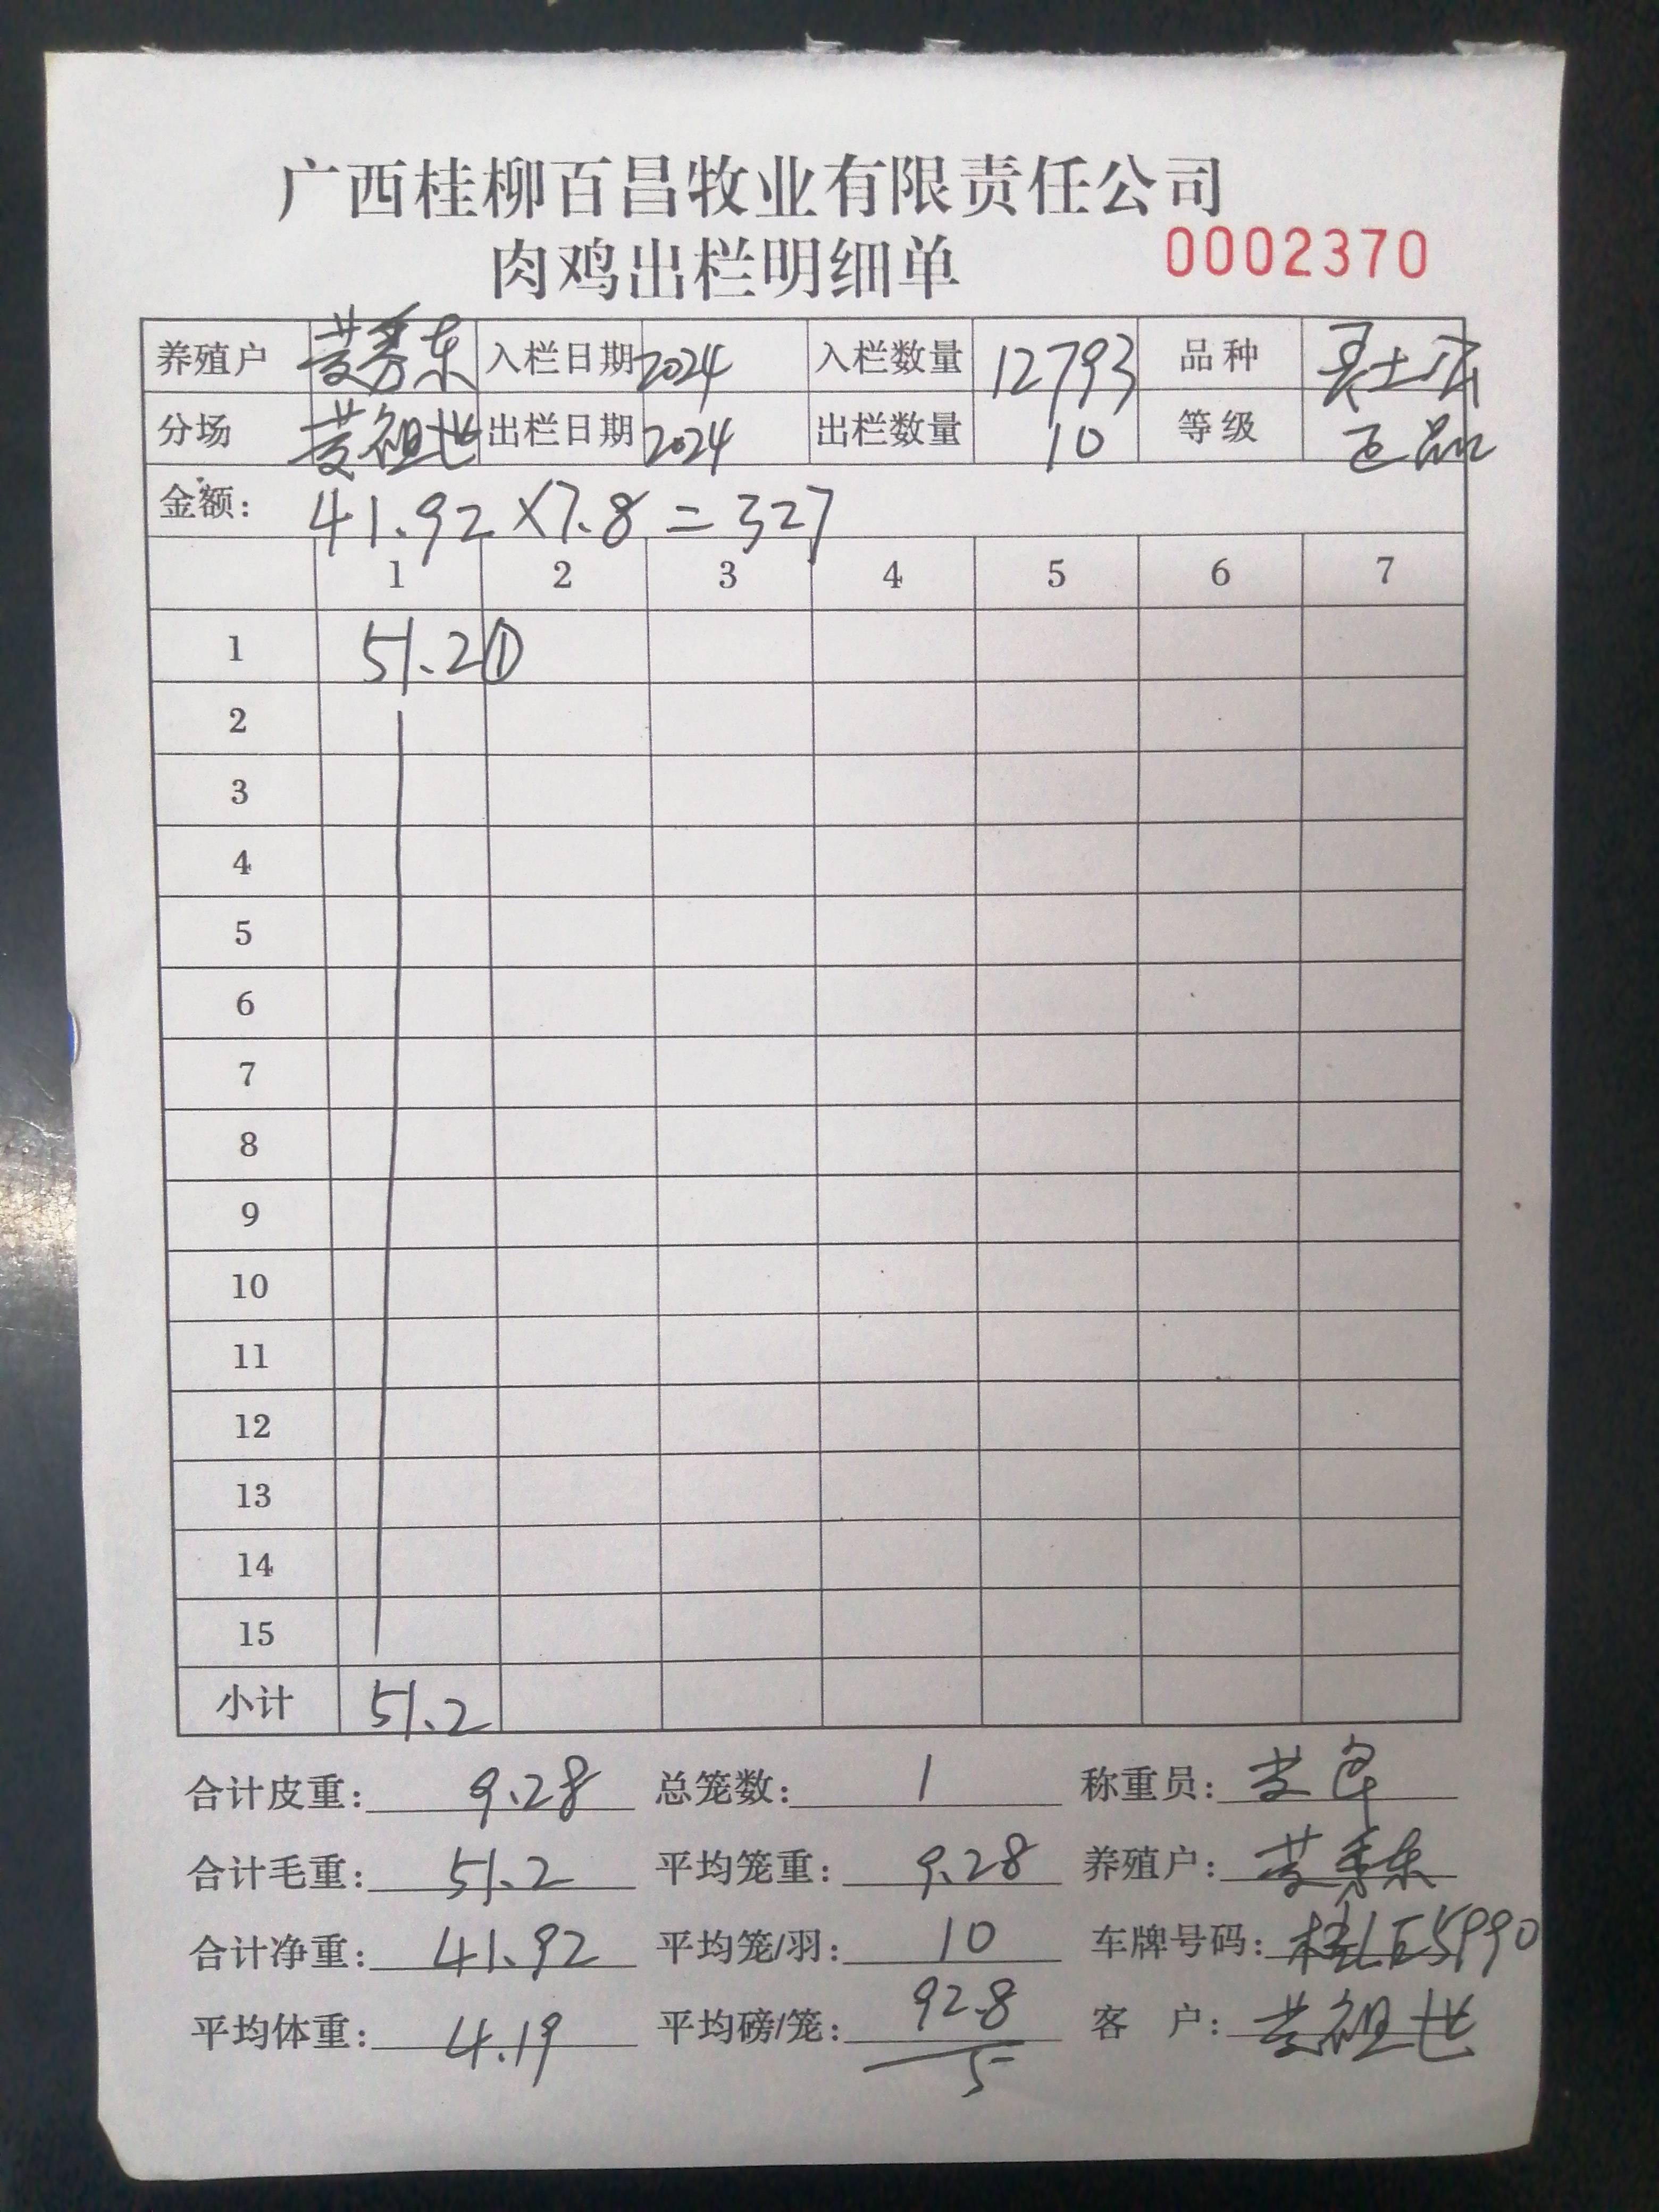 广西桂柳百昌牧业有限责任公司
肉鸡出栏明细单 0002370
养殖户 黄秀东 入栏日期 2024 入栏数量 12793 品种
分场 黄祖世 出栏日期 2024 出栏数量 10 等级 正品
金额: 41.92×7.8=327
1 2 3 4 5 6 7
1 51.2①
2
3
4
5
6
7
8
9
10
11
12
13
14
15
小计 51.2
合计皮重: 9.28 总笼数: 1 称重员:
合计毛重: 51.2 平均笼重: 9.28 养殖户: 黄秀东
合计净重: 41.92 平均笼/羽: 10 车牌号码: 桂LE5990
平均体重: 4.19 平均磅/笼: 92.8 客 户: 黄祖世
5